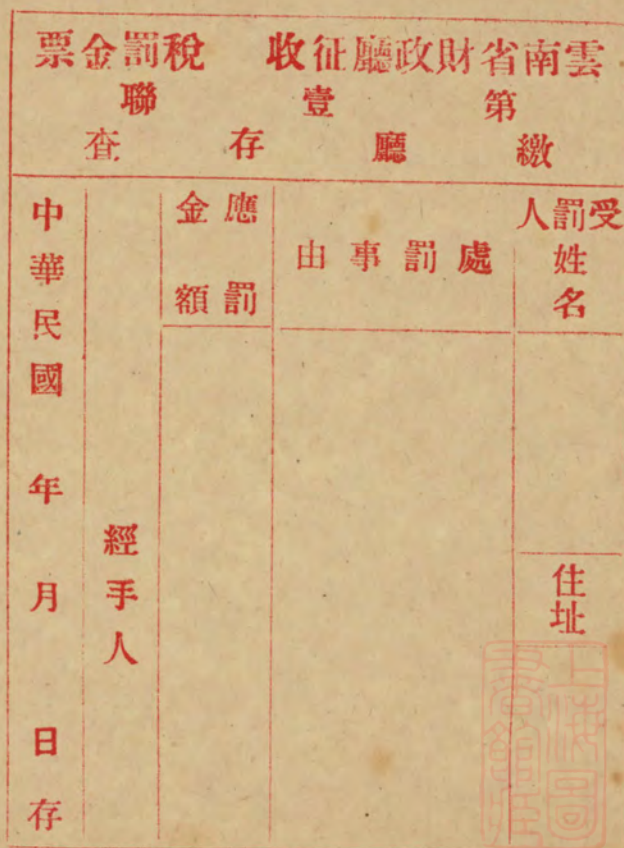 雲南省財政廳征收　稅罰金票
第壹聯
繳廳存查
受罰人姓名
住址
處罰事由
應罰金額
經手人
中華民國　年　月　日存
上海圖書館藏